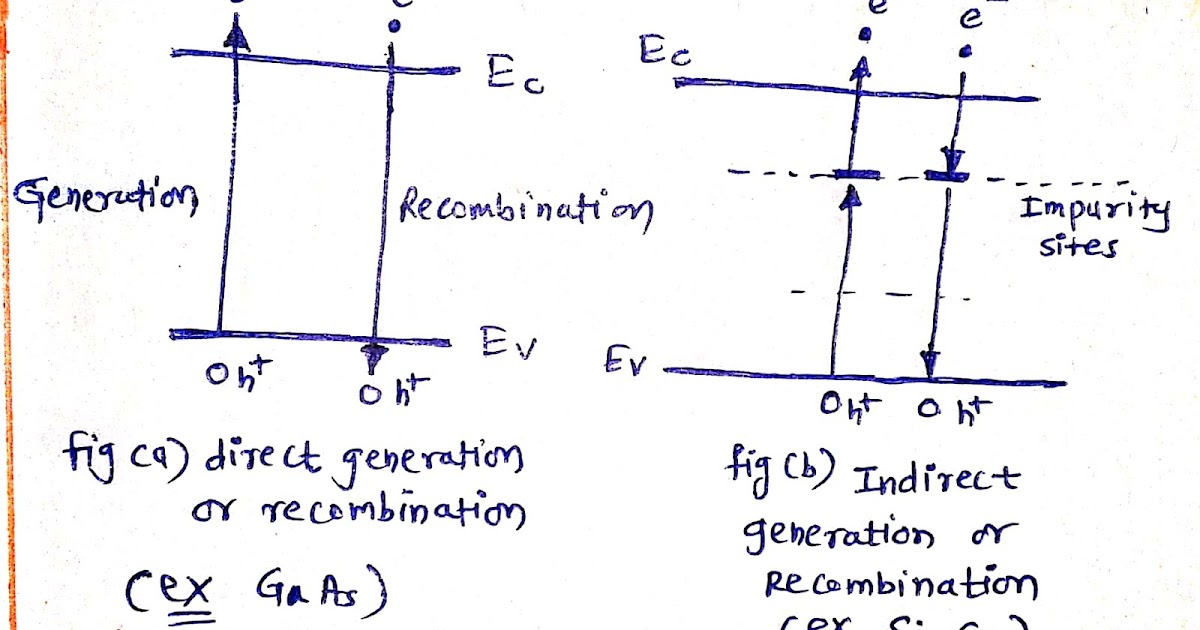 e
e
e⁻
Ec
Ec
Generation
Recombination
Impurity
sites
Ev
Ev
h⁺
h⁺
h⁺
h⁺
fig (a) direct generation
or recombination
(ex GaAs)
fig (b) Indirect
generation or
Recombination
(ex